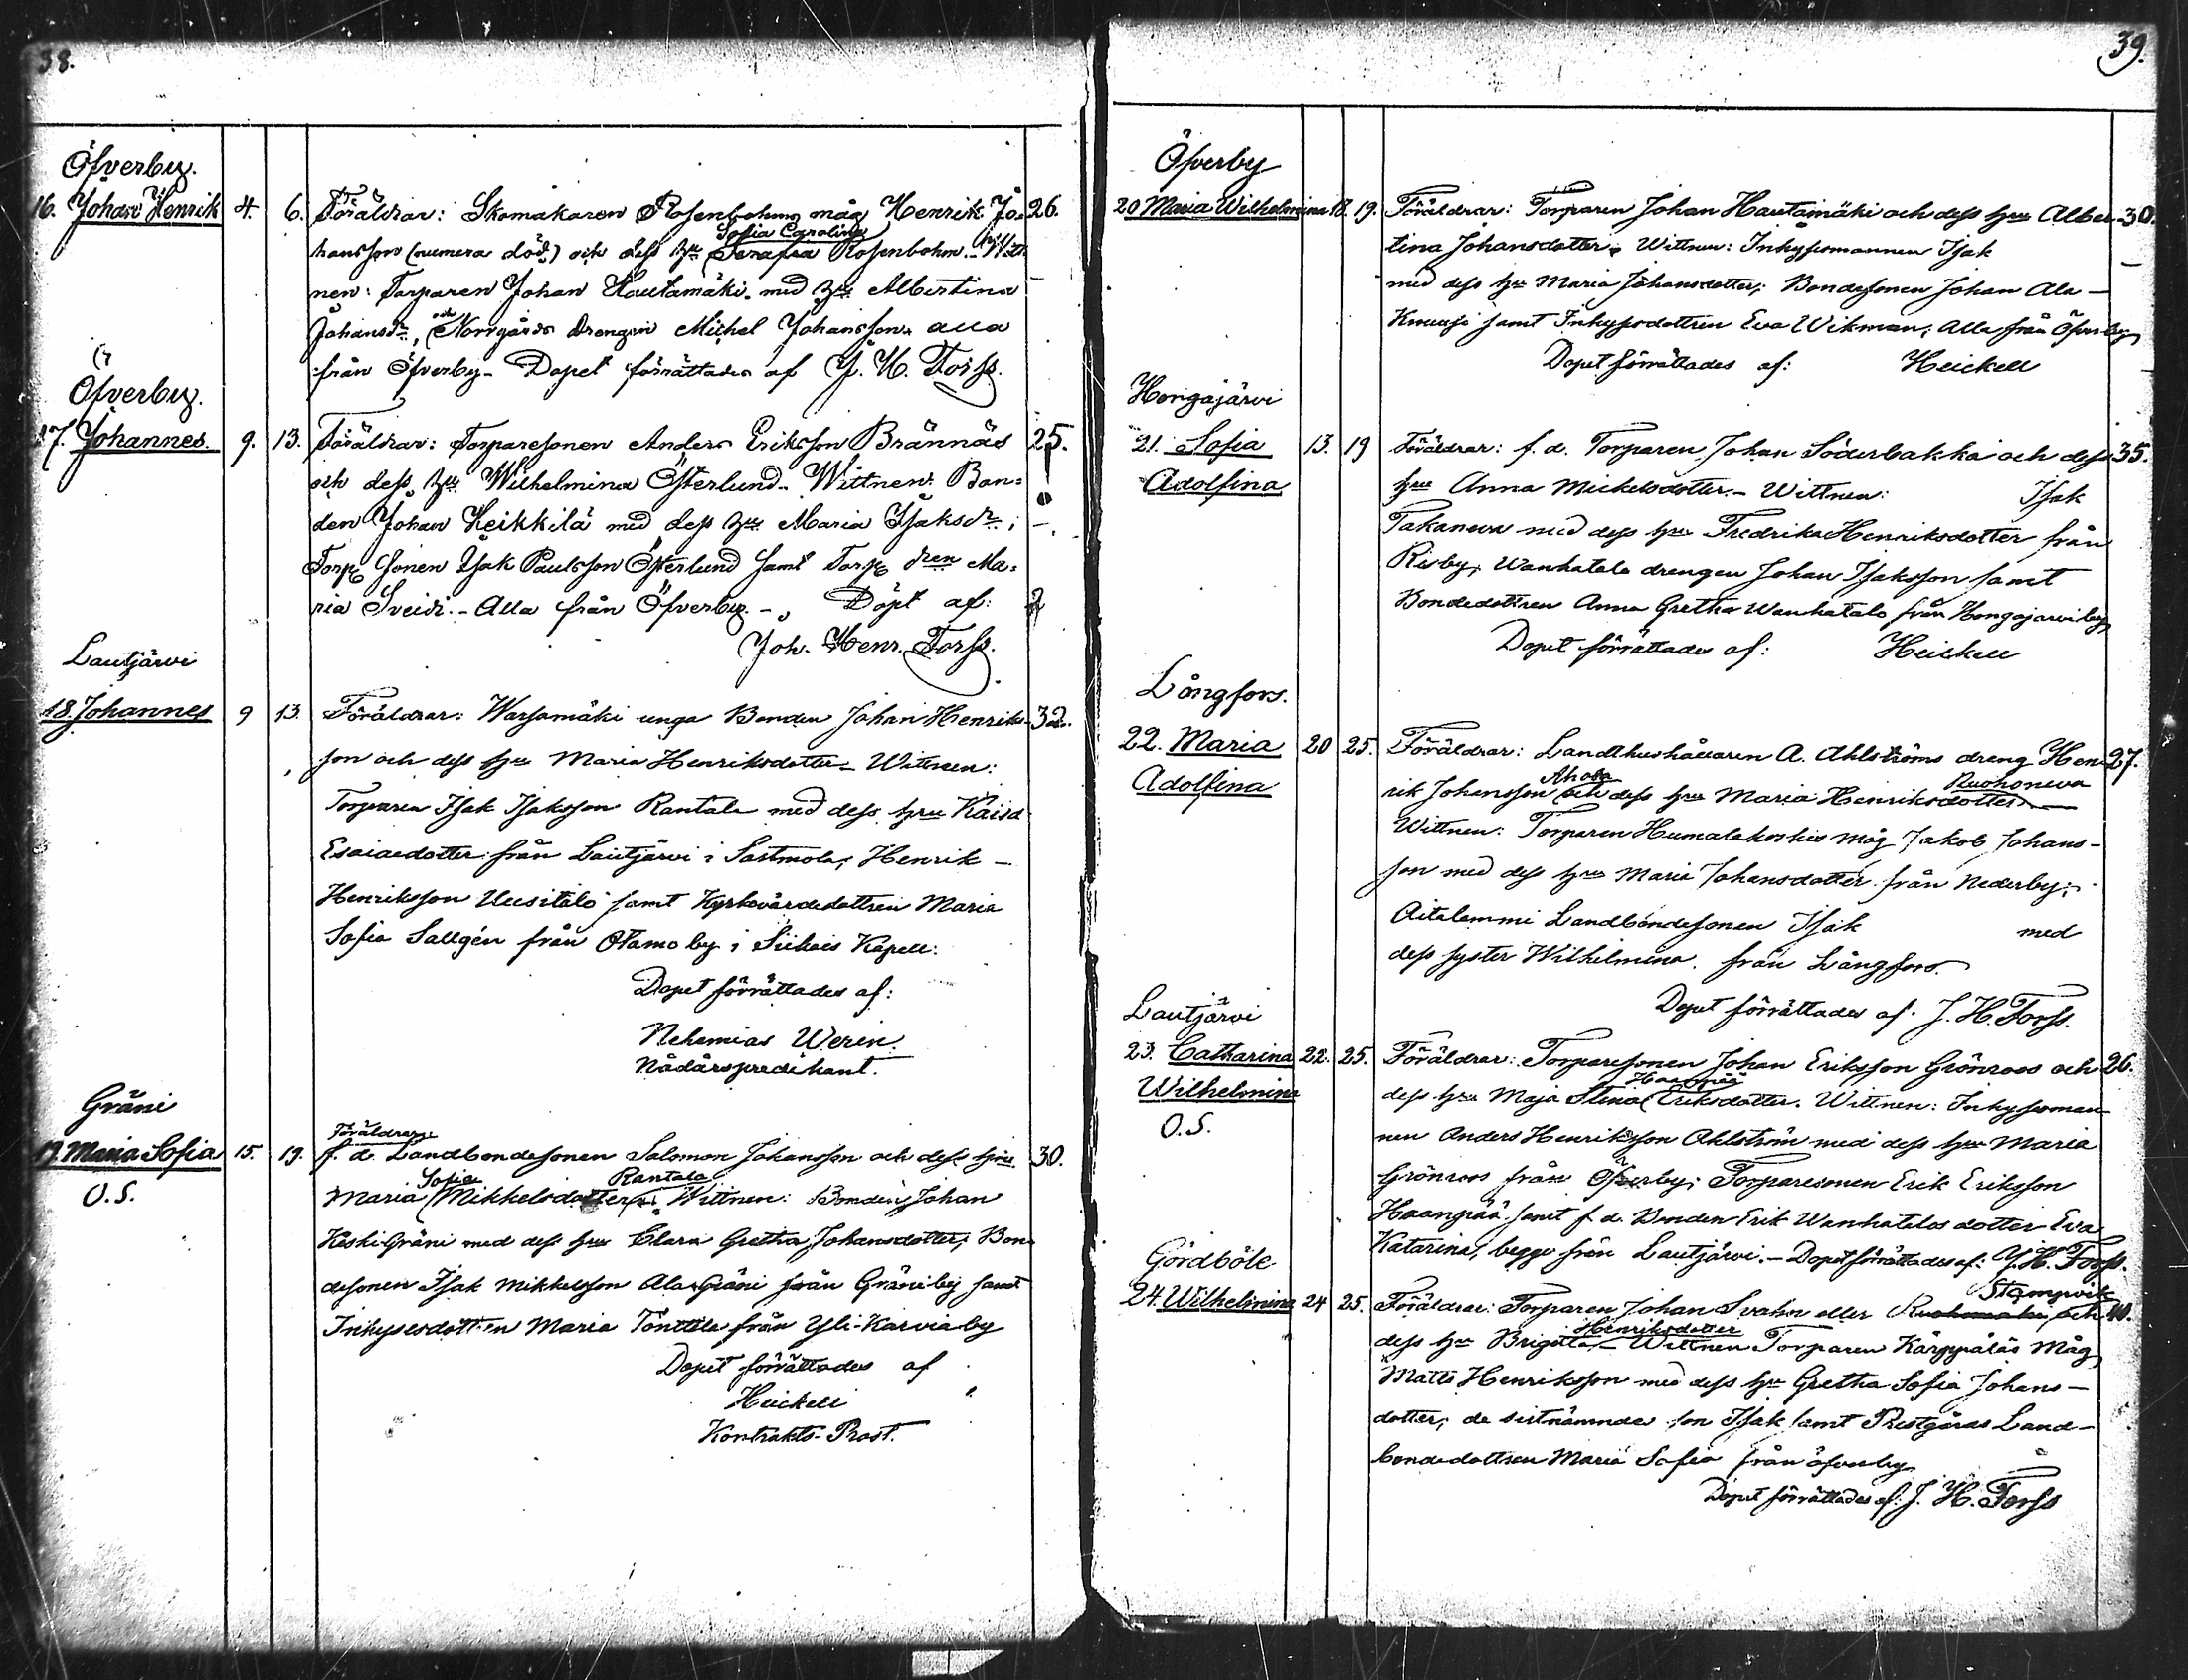 38.
Öfverby.
16. Johan Henrik 4. 6. Föräldrar: Skomakaren Rosenbohms måg Henrik Jo- 26.
hansson (numera död) och dess hu Sofia Carolina Serafia Rosenbohm. Witt
nen: Torparen Johan Hautamäki med hu Albertina
Johansdr, och Norrgårds drengen Michel Johansson alla
från Öfverby- Dopet förrättades af J. H. Forss.
Öfverby.
17. Johannes. 9. 13. Föräldrar: Torparesonen Anders Eriksson Brännäs 25.
och dess hu Wilhelmina Österlund. Wittnen: Bon=
den Johan Heikkilä med dess hu Maria Isaksdr;
Torp sonen Isak Paulsson Österlund samt Torp dren Ma=
ria Sveidi.- Alla från Öfverby.- Döpt af:
Joh. Henr. Forss.
Lautjärvi
18. Johannes 9 13. Föräldrar: Warsamäki unga Bonden Johan Henriks- 32.
son och dess hru Maria Henriksdotter- Wittnen:
Torparen Isak Isaksson Rantala med dess hru Kaisa
Esaiaedotter från Lautjärvi i Sastmola; Henrik -
Henriksson Uusitalo samt Kyrkovärdedottren Maria
Sofia Sallgén från Otamo by i Siikais Kapell:
Dopet förrättades af:
Nehemias Werin.
Nådårspredikant.
Gräni
19. Maria Sofia 15. 19. Föräldrar: f. d. Landbondesonen Salomon Johansson och dess hru 30.
O.S. Maria Sofia Mikkelsdotter Rantala Wittnen: Bonden Johan
Keski-Gräni med dess hru Clara Gretha Johansdotter; Bon
desonen Isak Mikkelsson Ala-Gräni från Gräniby samt
Inhysesdottren Maria Tönttilä från Yli-Karvia by
Dopet förrättades af
Heickell
Kontrakts-Prost.
39.
Öfverby
20 Maria Wilhelmina 18. 19. Föräldrar: Torparen Johan Hautamäki och dess hru Alber- 30.
tina Johansdotter. Wittnen: Inhysesmannen Isak
med dess hru Maria Johansdotter; Bondesonen Johan Ala-
Knuusi samt Inhysesdottren Eva Wikman; Alla från Öfverby
Dopet förrättades af: Heickell
Hongajärvi
21. Sofia 13. 19 Föräldrar: f. d. Torparen Johan Söderbakka och dess 35.
Adolfina hru Anna Mickelsdotter.- Wittnen: Isak
Takaneva med dess hru Fredrika Henriksdotter från
Risby; Wanhatalo drengen Johan Isaksson samt
Bondedottren Anna Gretha Wanhatalo från Hongajarvi by
Dopet förrättades af: Heickell
Långfors.
22. Maria 20 25. Föräldrar: Landthushållaren A. Ahlströms dreng Hen- 27.
Adolfina rik Johansson Ahola och dess hru Maria Henriksdotter Ruohoneva
Wittnen: Torparen Humalakoskis måg Jakob Johans-
son med dess hru Maria Johansdotter från Nederby;
Aitalammi Landbondesonen Isak med
dess syster Wilhelmina. från Långfors.
Dopet förrättades af. J. H. Forss.
Lautjärvi
23. Catharina 22. 25. Föräldrar: Torparesonen Johan Eriksson Grönroos och 26.
Wilhelmina dess hru Maja Stina Haanpää Eriksdotter. Wittnen: Inhysesman-
O.S. nen Anders Henriksson Ahlström med dess hru Maria
Grönroos från Öfverby; Torparesonen Erik Eriksson
Haanpää samt f. d. Bonden Erik Wanhatalos dotter Eva
Katarina, begge från Lautjärvi.- Dopet förrättades af: J. H. Forss.
Gördböle
24. Wilhelmina 24 25. Föräldrar: Torparen Johan Svahn eller Ruohomäki Stampvik och 40.
dess hru Brigitta Henriksdotter- Wittnen Torparen Kärppäläs Måg
Matts Henriksson med dess hru Gretha Sofia Johans-
dotter; de sistnämndes son Isak samt Prestgårds Land-
bondedottren Maria Sofia från öfverby
Dopet förrättades af: J. H. Forss